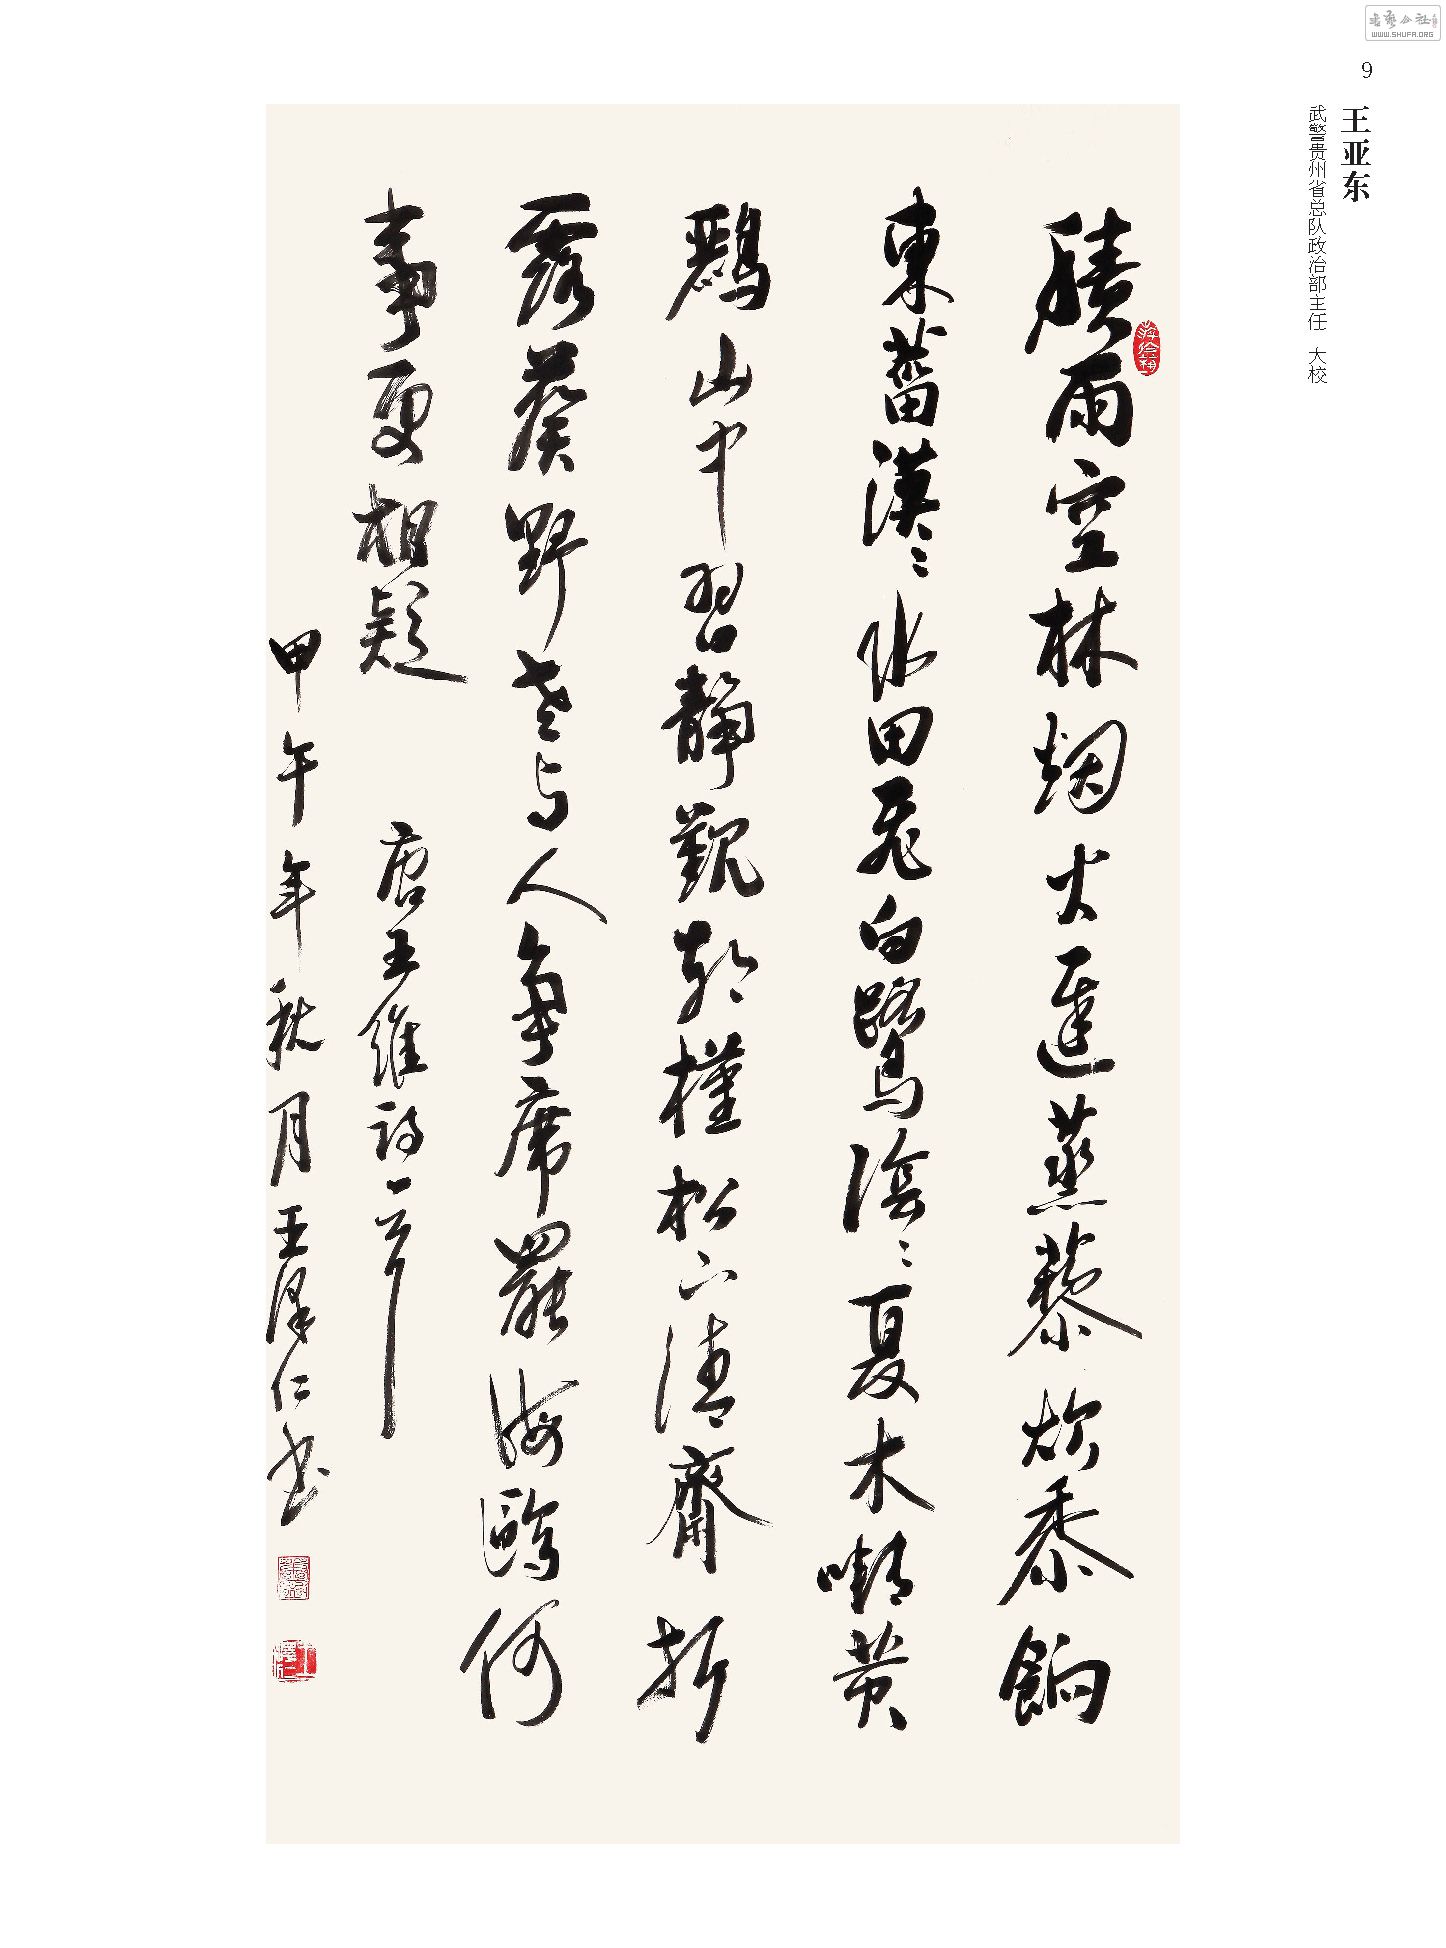 書藝公社
WWW.SHUFA.ORG
9
王亚东
武警贵州省总队政治部主任 大校
積雨空林烟火遲蒸藜炊黍餉
東菑漠〻水田飛白鷺陰〻夏木囀黃
鸝山中習靜觀朝槿松下清齋折
露葵野老与人爭席罷海鷗何
事更相疑 唐王維詩一首
甲午年秋月王澤仁书